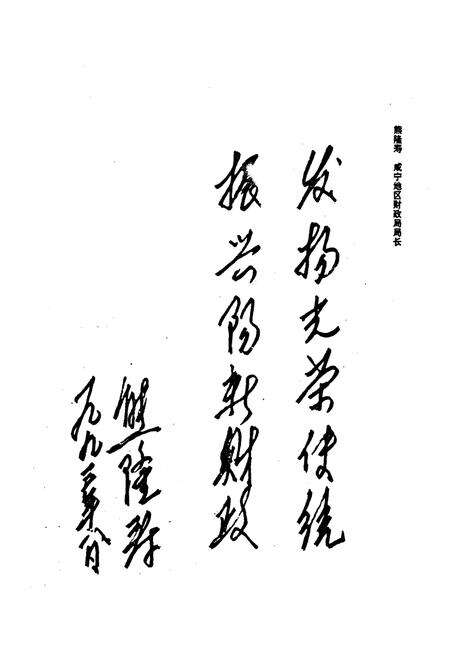 熊隆寿 咸宁地区财政局局长
发扬光荣传统
振兴阳新财政
熊隆寿
一九九二年八月